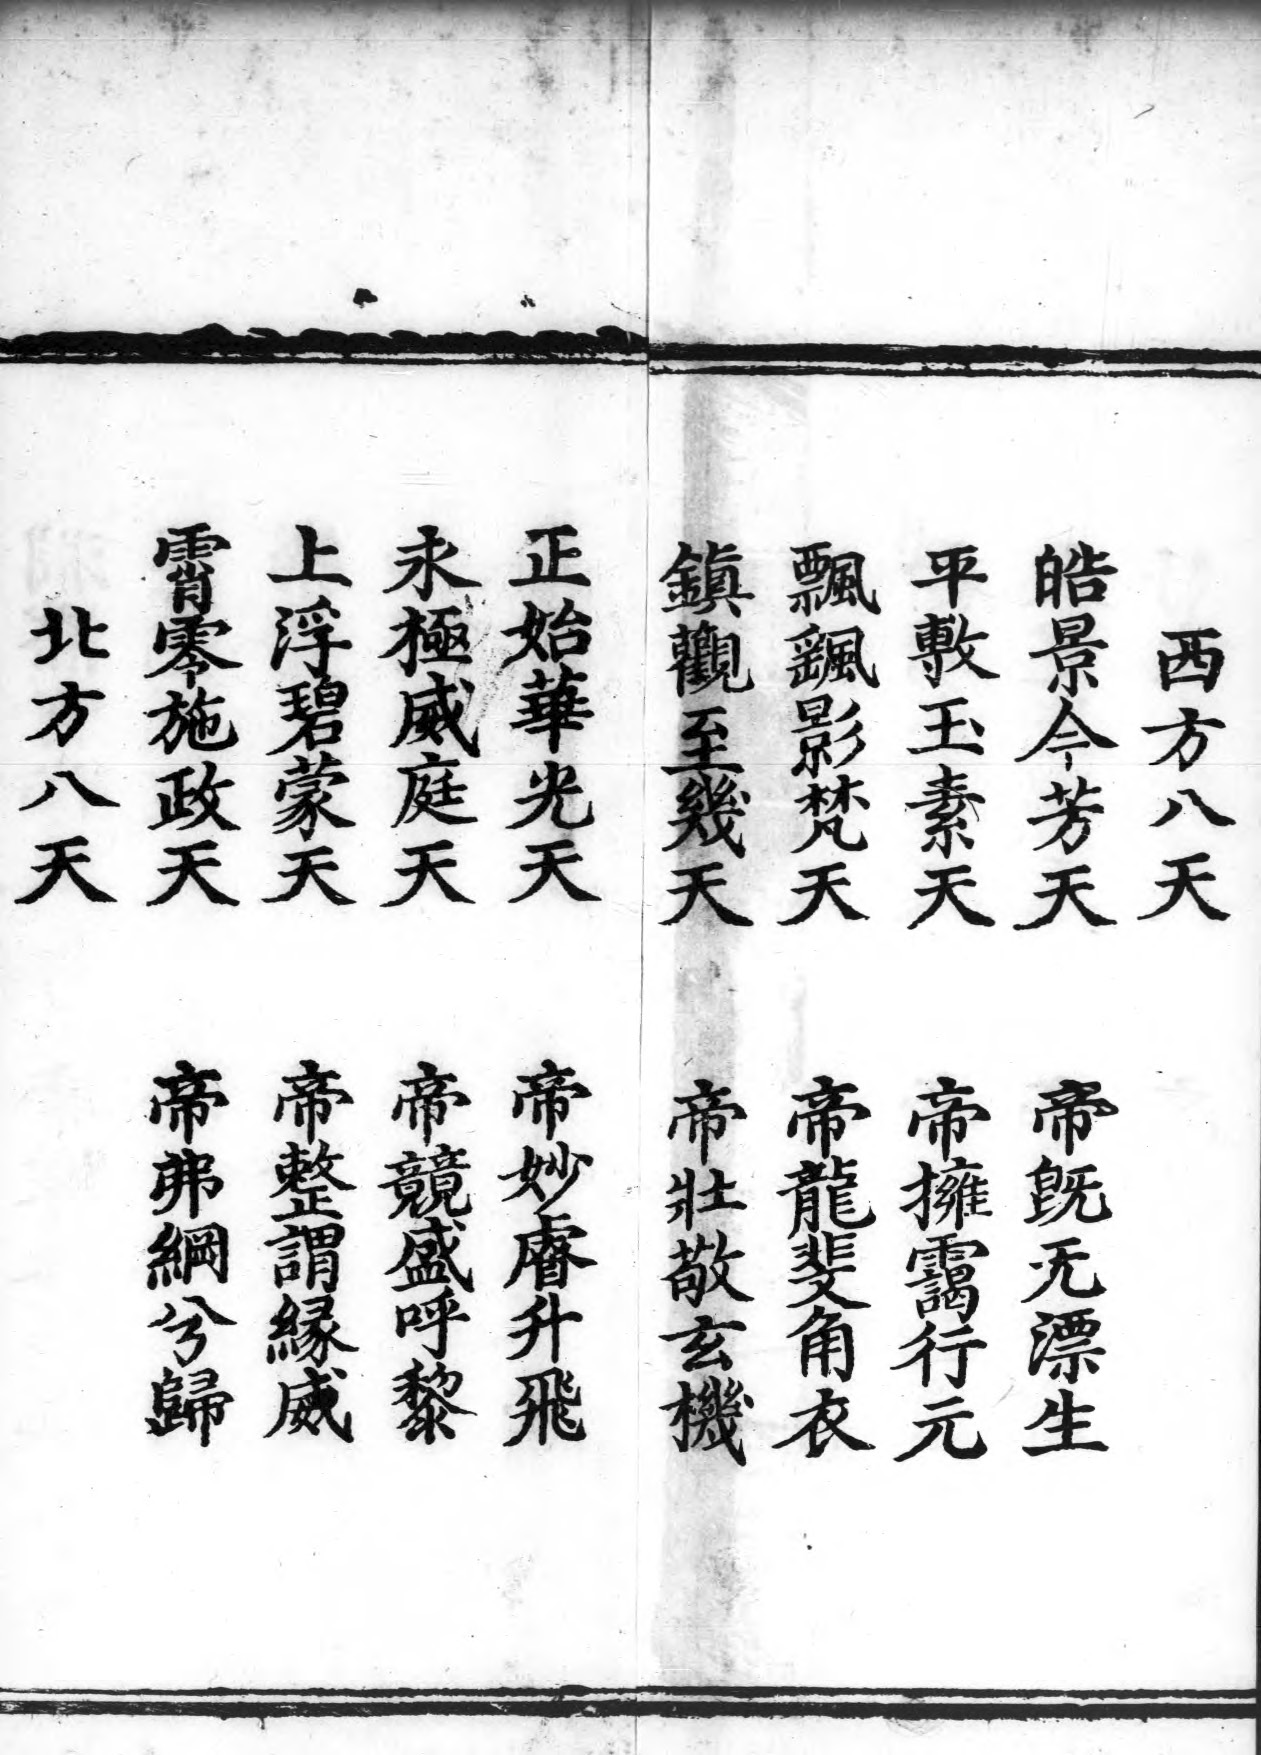 西方八天
皓景今芳天　帝旣无漂生
平敷玉素天　帝擁靄行元
飄飖影梵天　帝龍斐角衣
鎮觀至幾天　帝壯敬玄機
正始華光天　帝妙睿升飛
永極威庭天　帝競盛呼黎
上浮碧蒙天　帝整謂緣威
霄零施政天　帝弗綱兮歸
北方八天